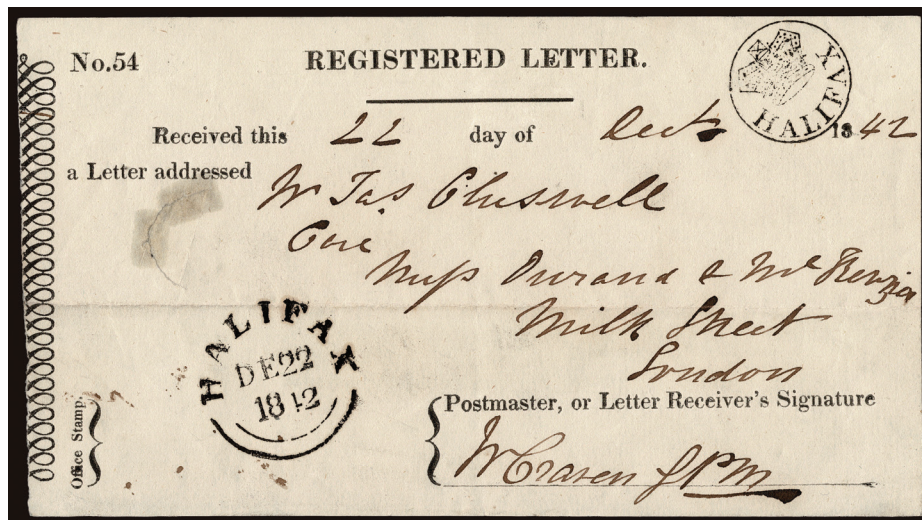 No.54 REGISTERED LETTER.
HALIFAX
Received this 22 day of Decr 1842
a Letter addressed
Mr Jas Chiswell
Care
Messrs Durand & McKenzie
Milk Street
London
HALIFAX
DE 22
1842
Office Stamp.
Postmaster, or Letter Receiver's Signature
W Craven PM